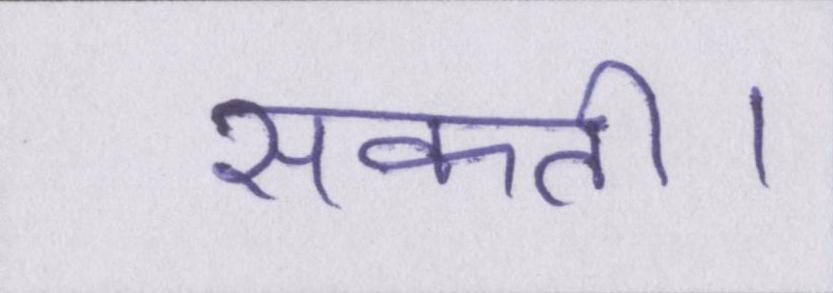 सकती।